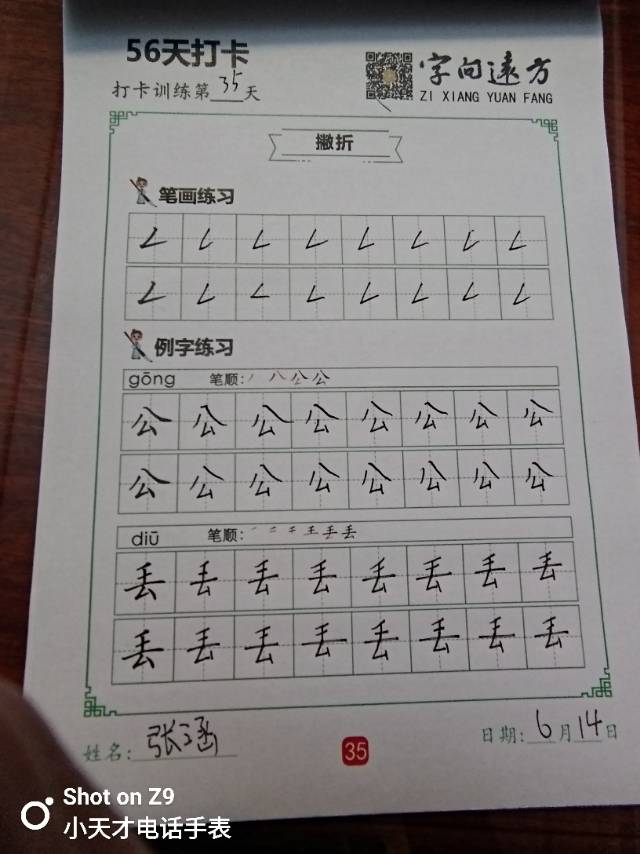 56天打卡
打卡训练第35天
字向远方
ZI XIANG YUAN FANG
撇折
笔画练习
𠃋 𠃋 𠃋 𠃋 𠃋 𠃋 𠃋 𠃋
𠃋 𠃋 𠃋 𠃋 𠃋 𠃋 𠃋 𠃋
例字练习
gōng 笔顺: 丿 八 公 公
公 公 公 公 公 公 公 公
公 公 公 公 公 公 公 公
diū 笔顺: 一 二 千 王 丢 丢
丢 丢 丢 丢 丢 丢 丢 丢
丢 丢 丢 丢 丢 丢 丢 丢
姓名: 张涵
35
日期: 6月14日
Shot on Z9
小天才电话手表